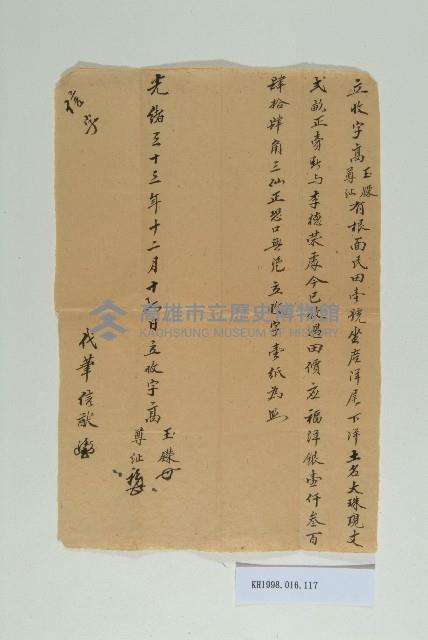 立收字高玉牒
尊沚有根面民田壹號坐産洋尾下洋土名大珠現丈
弍畝正賣斷与李德荣處今已收過田價応福洋銀壹仟叁百
肆拾肆角三仙正恐口無凴立收字壹紙為照
光緒三十三年十二月十 日立收字高玉牒
尊沚
代筆
高雄市立歷史博物館
KAOHSIUNG MUSEUM OF HISTORY
KH1998.016.117